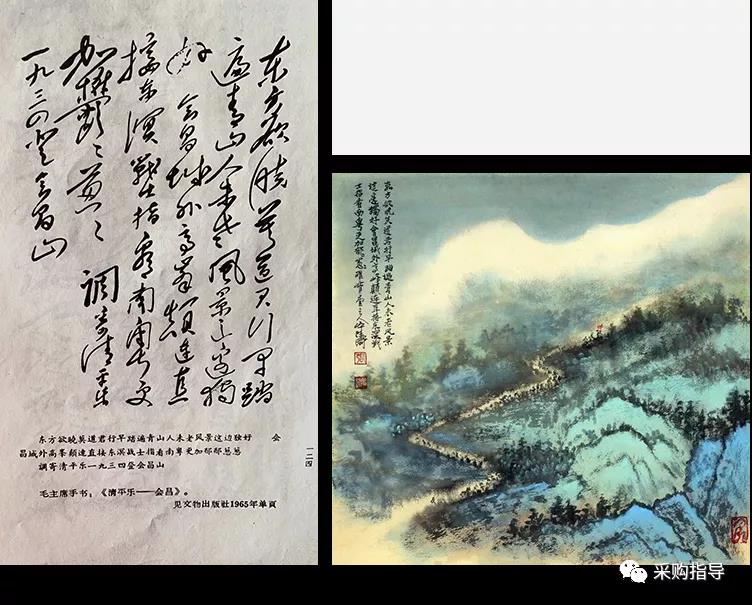 东方欲晓莫道君行早踏
遍青山人未老风景这边独
好 会昌城外高峯颠连直
接东溟战士指看南粤更
加鬱〻葱〻 調寄清平乐
一九三四登会昌山
东方欲晓莫道君行早踏遍青山人未老风景这边独好 会
昌城外高峯颠连直接东溟战士指看南粤更加郁郁葱葱
調寄清平乐一九三四登会昌山
毛主席手书：《清平乐——会昌》。
见文物出版社1965年单頁
一二四
东方欲晓莫道君行早踏遍青山人未老风景
这边独好會昌城外高峰颠连直接东溟戰
士指看南粤更加郁
采购指导